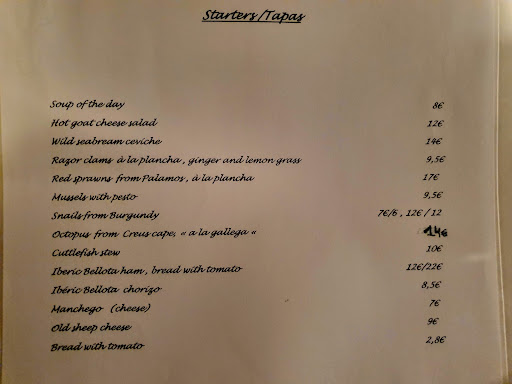 Starters/Tapas
Soup of the day 8€
Hot goat cheese salad 12€
Wild seabream ceviche 14€
Razor clams à la plancha, ginger and lemon grass 9,5€
Red sprawns from Palamos, à la plancha 17€
Mussels with pesto 9,5€
Snails from Burgundy 7€/6, 12€/12
Octopus from Creus cape, « a la gallega « 14€
Cuttlefish stew 10€
Iberic Bellota ham, bread with tomato 12€/22€
Ibéric Bellota chorizo 8,5€
Manchego (cheese) 7€
Old sheep cheese 9€
Bread with tomato 2,8€